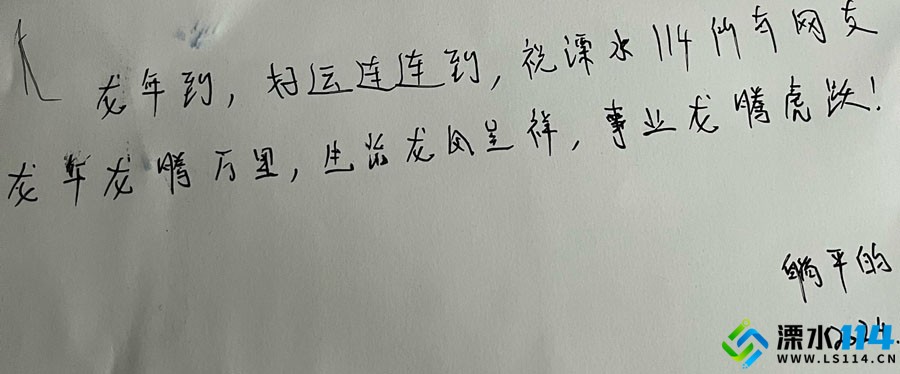 龙年到，好运连连到，祝溧水114所有网友
龙年龙腾万里，生活龙凤呈祥，事业龙腾虎跃！
躺平的
2024.
溧水114
WWW.LS114.CN